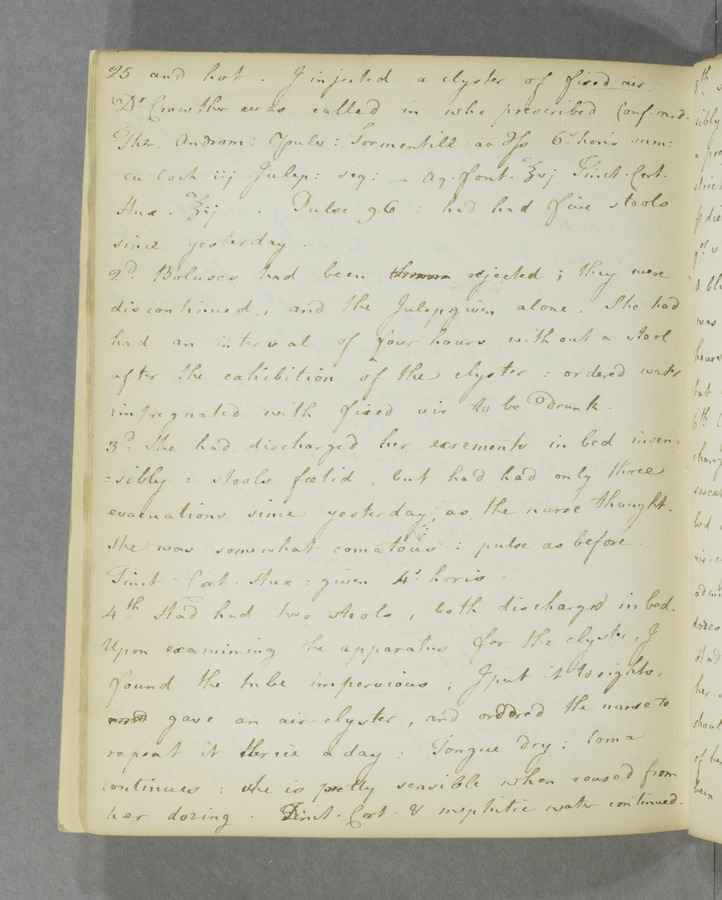 25 and hot. I injected a clyster of fixed air.
Dr Crowther was called in who prescribed Conf.
Ther. Androm: Tpulv: Tormentill: aa ʒſs 6is horis sum:
cu Coch iij Julep: seq: — Aq. font. ℥vj Tinct. Cort.
Hux. ℥ij. Pulse 96: had had five stools
since yesterday.
2d. Boluses had been rejected; they were
discontinued, and the Julep given alone. She had
had an interval of four hours without a stool
after the exhibition of the clyster: ordered water
impregnated with fixed air to be drank.
3d. She had discharged her excrements in bed insen-
=sibly: stools fœtid, but had had only three
evacuations since yesterday, as the nurse thought.
She was somewhat comatous: pulse as before.
Tinct: Cort. Hux: given 4is horis.
4th Had had two stools, both discharged in bed.
Upon examining the apparatus for the clyster, I
found the tube impervious; I put it to rights,
gave an air-clyster, and ordered the nurse to
repeat it thrice a day: Tongue dry: Coma
continues: she is pretty sensible when roused from
her dozing. Tinct. Cort. & mephitic water continued.
5th
6th